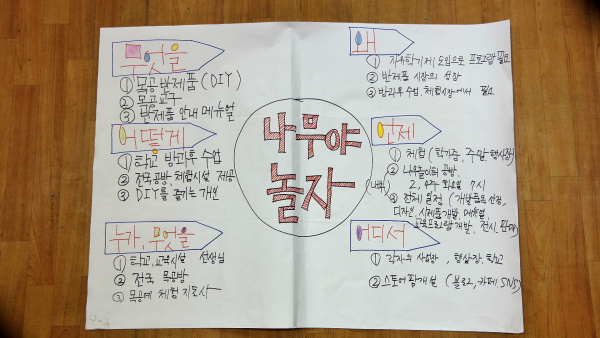 무엇을
① 목공 반제품 (DIY)
② 목공교구
③ 반제품 안내 메뉴얼
어떻게
① 학교 방과후 수업
② 전국공방, 체험시설 제공
③ DIY를 즐기는 개인
누가, 무엇을
① 학교, 교육시설 선생님
② 전국 목공방
③ 목공예 체험 지도사
나무야
놀자
왜
① 자유학기제 도입으로 프로그램 필요
② 반제품 시장의 성장
③ 방과후 수업, 체험시장에서 필요
언제
① 체험 (학기중, 주말, 행사장)
② 나무놀이터 공방
2, 4주 화요일 7시
③ 전체 일정 (개발품목 선정,
디자인, 시제품개발, 메뉴얼,
교육프로그램개발, 전시, 판매)
어디서
① 각자의 사업장, 행사장, 학교
② 스토어팜개설 (블로그, 카페, SNS)